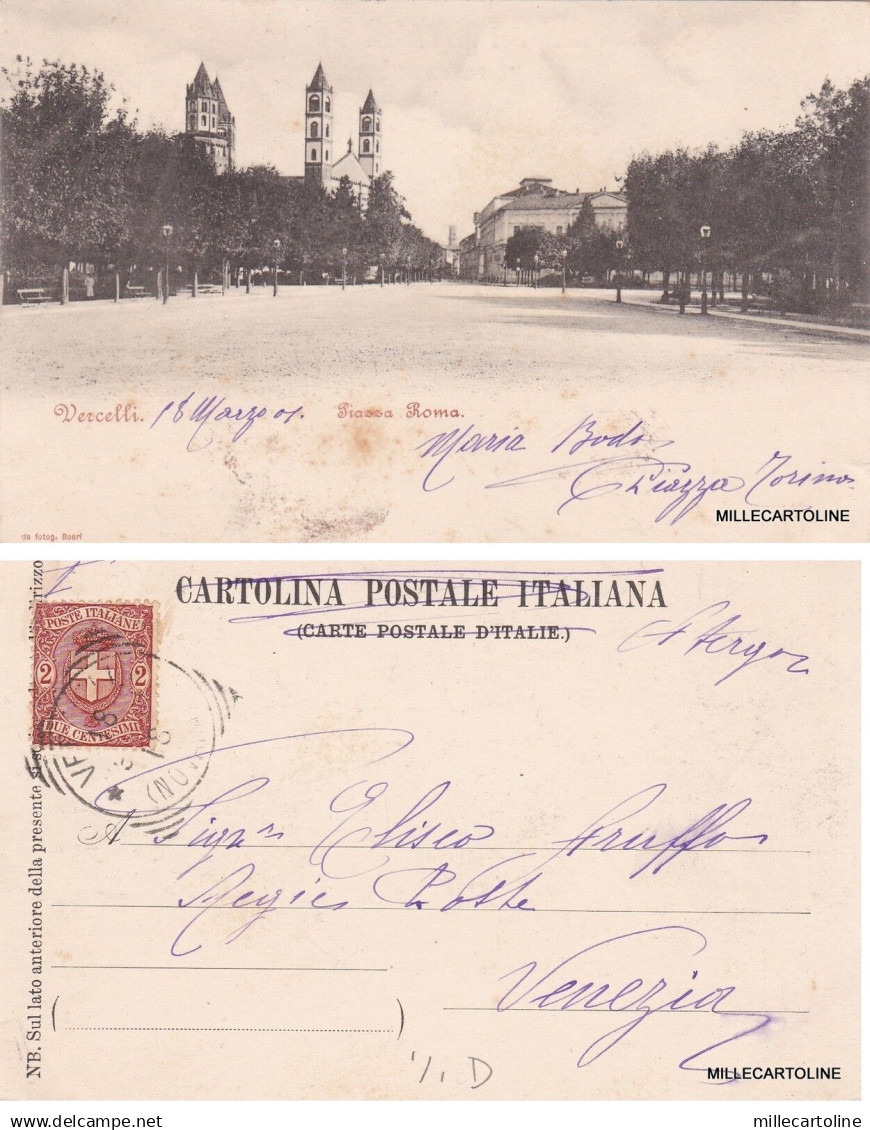 Vercelli. 18 Marzo 01. Piazza Roma.
Maria Bodo
Piazza Torino
MILLECARTOLINE
da fotog. Boeri
CARTOLINA POSTALE ITALIANA
(CARTE POSTALE D'ITALIE.)
POSTE ITALIANE
2 2
DUE CENTESIMI
VE
(NOVARA
A Sigr Eliseo
Regie Poste
Venezia
NB. Sul lato anteriore della presente si
MILLECARTOLINE
www.delcampe.net
millecartoline